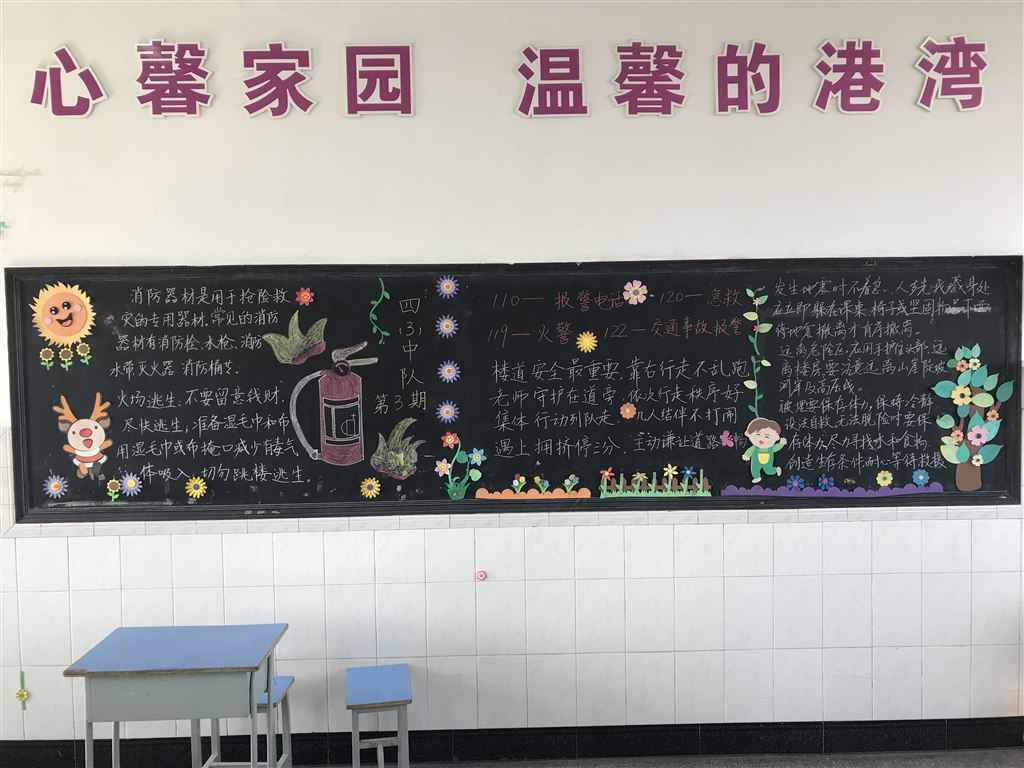 心馨家园 温馨的港湾
消防器材是用于抢险救
灾的专用器材.常见的消防
器材有消防栓、水枪、消防
水带 灭火器 消防桶等.
火场逃生、不要留意钱财.
尽快逃生,准备湿毛巾和布
用湿毛巾或布掩口减少毒气
体吸入.切勿跳楼逃生.
四(3)中队
第3期
110一报警电话 120一急救
119一火警 122一交通事故报警
楼道安全最重要,靠右行走不乱跑
老师守护在道旁 依次行走秩序好
集体行动列队走 几人结伴不打闹
遇上拥挤停三分,主动谦让道路畅
发生地震时
应立即躲在课桌、椅子或坚固
待地震撤离才有序撤离.
远离危险区.应用手护住头部,远
离楼房,要注意远离山崖陡坡
河岸及高压线.
被埋要保存体力,保持冷静
设法自救.无法脱险时要保
存体力尽力寻找水和食物.
创造生存条件,耐心等待救援